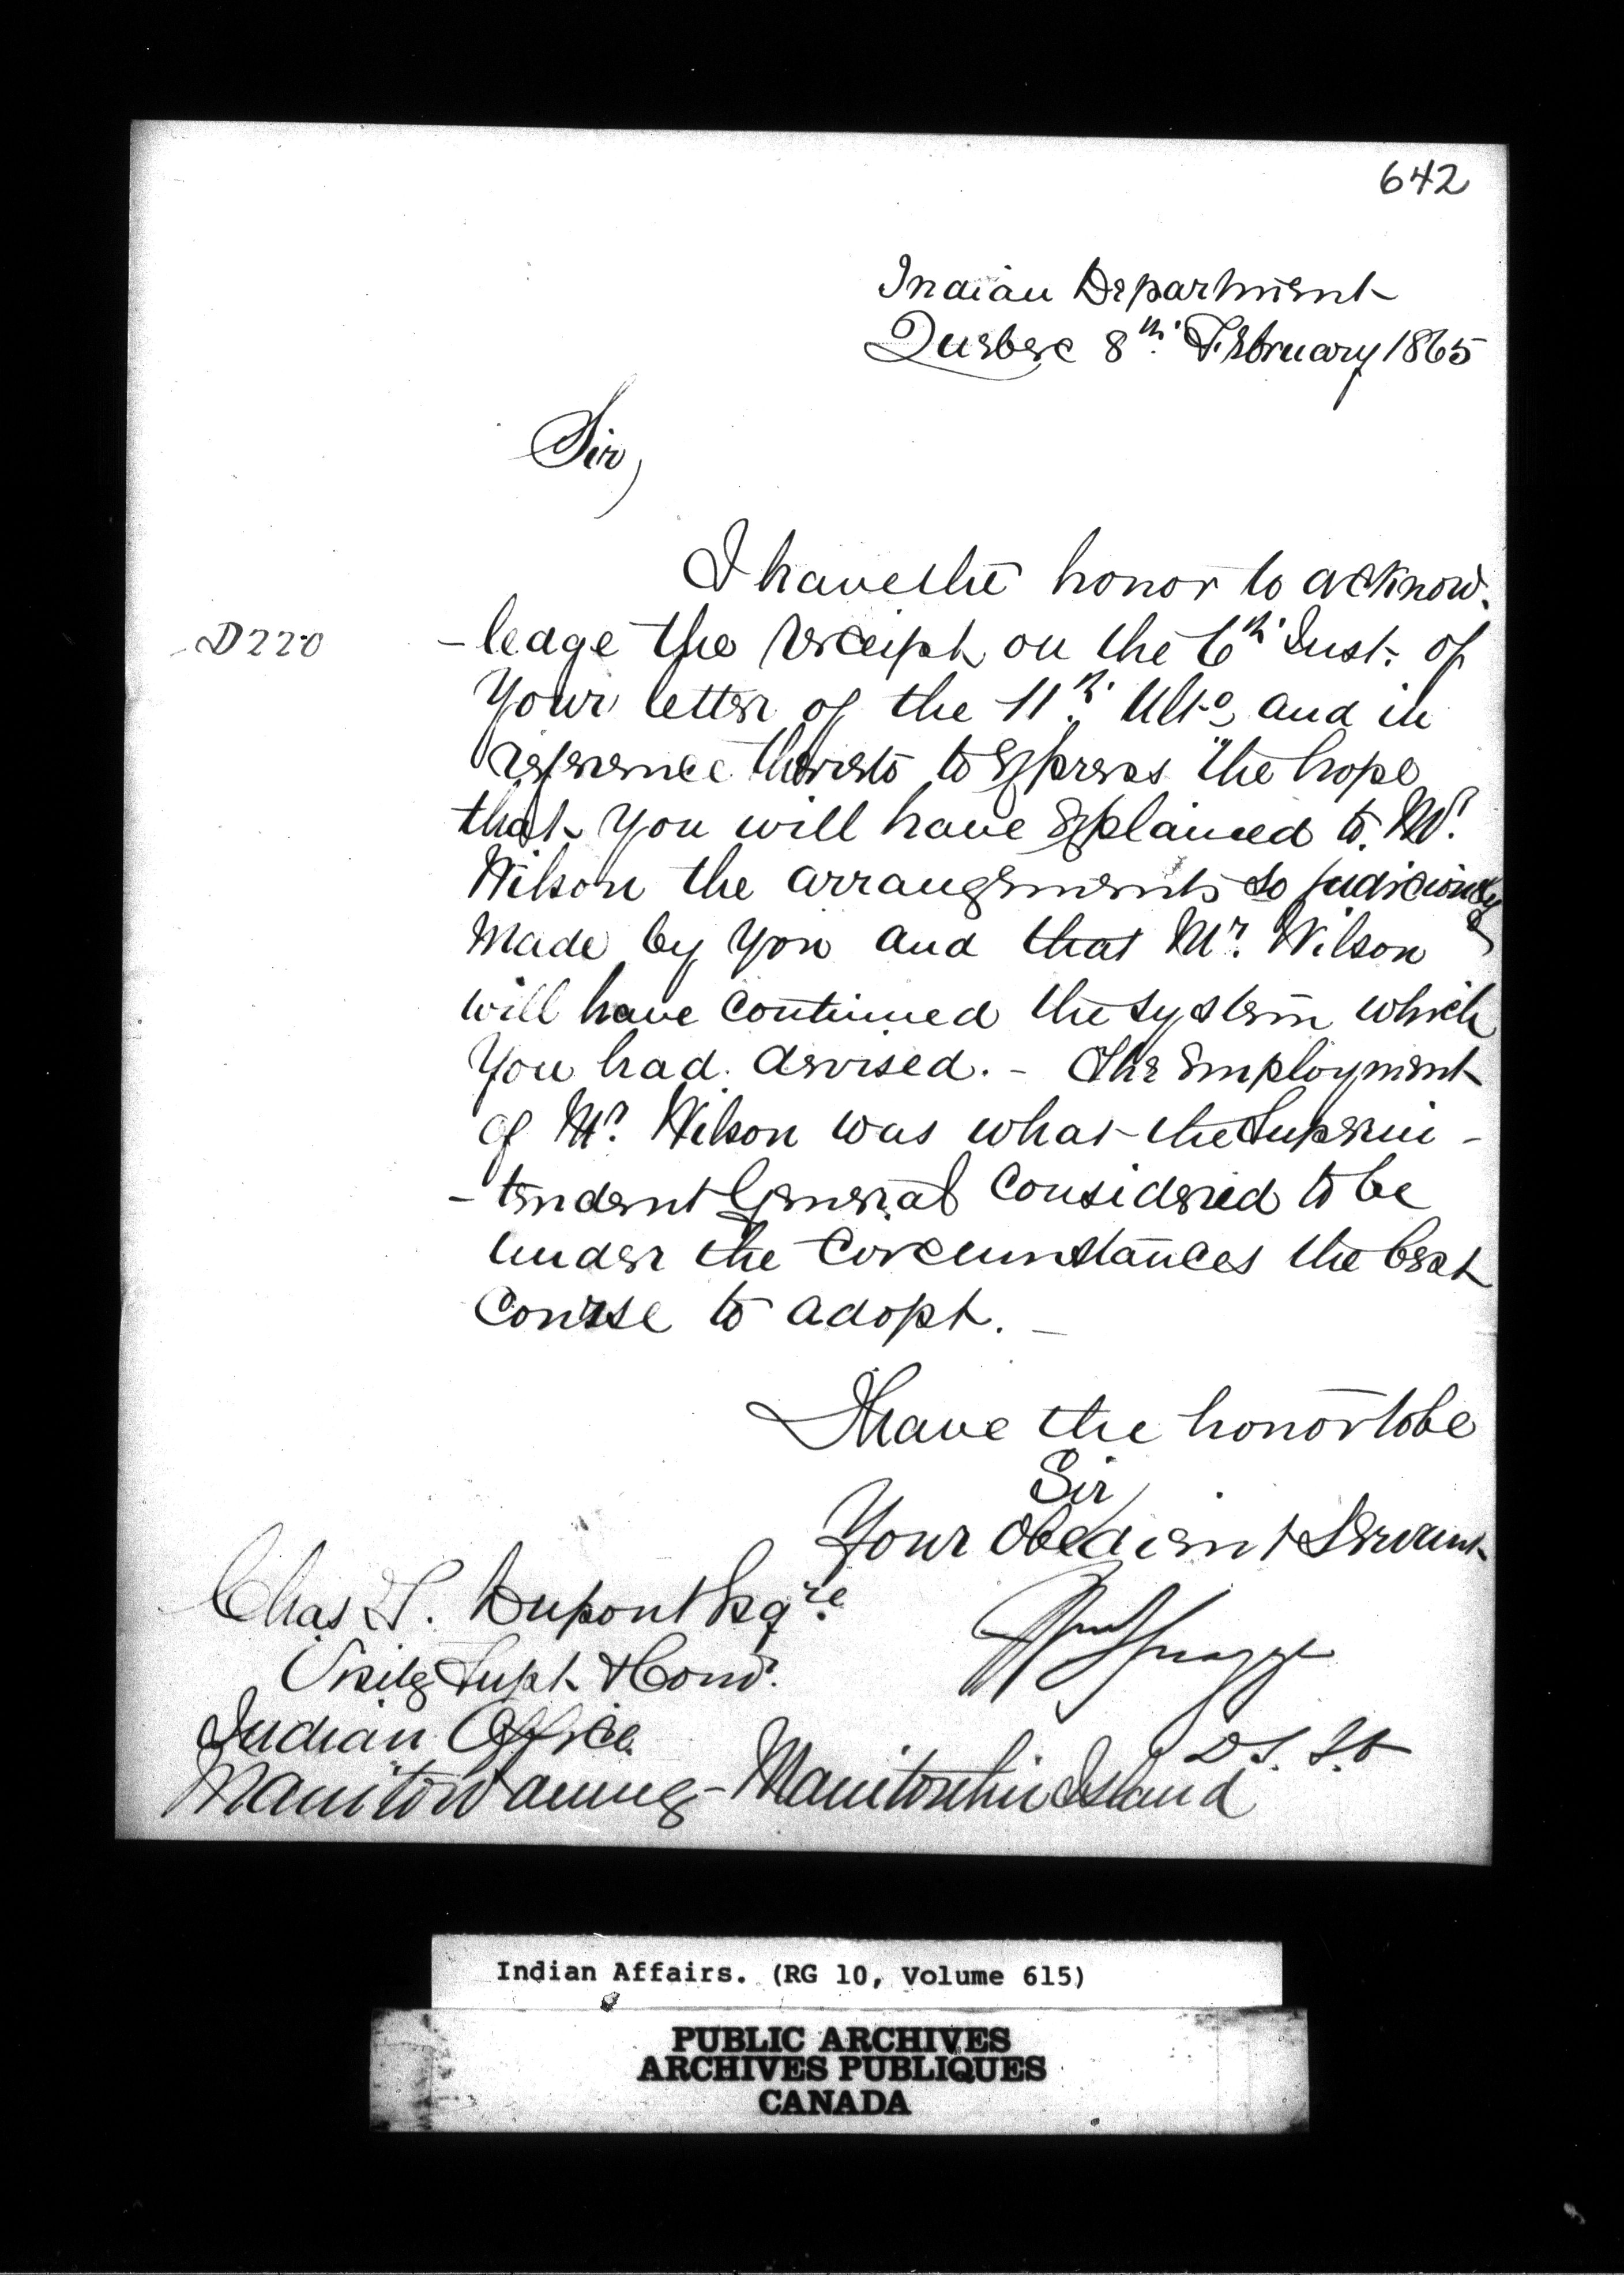 642
Indian Department
Quebec 8th. February 1865
Sir,
I have the honor to acknow-
D220
-ledge the receipt on the 6th Inst. of
Your letter of the 11th. Ulto, and in
reference thereto to express the hope
that you will have explained to Mr.
Wilson the arrangements so judiciously
Made by you and that Mr. Wilson
will have continued the system which
You had devised. - The employment
of Mr. Wilson was what the Superin-
-tendent General considered to be
under the circumstances the best
Course to adopt. -
I have the honor to be
Sir
Your obedient Servant
Chas T. Dupont Esqre.
Wm Spragge
Visitg Supt. & Comr.
D S. I A
Indian Office
Manitowaning - Manitoulin Island
Indian Affairs. (RG 10, Volume 615)
PUBLIC ARCHIVES
ARCHIVES PUBLIQUES
CANADA